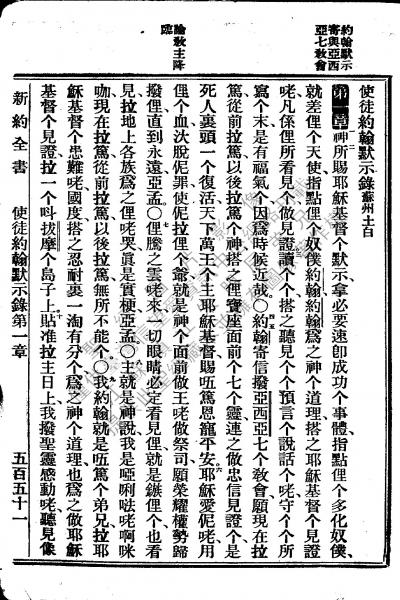 約翰默示
寄與亞西
亞七教會
論救主降
臨
使徒約翰默示錄 蘇州土白
第一章 神所賜耶穌基督个默示拿必要速卽成功个事體指點俚个多化奴僕
就差俚个天使指點俚个奴僕約翰約翰爲之神个道理搭之耶穌基督个見證
咾凡係俚所看見个做見證讀个个搭之聽見个个預言个說話咾守个个所
寫个末是有福氣个因爲時候近哉○約翰寄信撥亞西亞七个教會願現在拉
篤從前拉篤以後拉篤个神搭之俚寶座面前个七个靈連之做忠信見證个是
死人裏頭一个復活天下萬王个主耶穌基督賜㑚篤恩寵平安耶穌愛伲咾用
俚个血決脫伲罪使伲拉俚个爺就是神个面前做王咾做祭司願榮耀權勢歸
撥俚直到永遠亞孟○俚騰之雲咾來一切眼睛必定看見俚就是鏃俚个也看
見拉地上各族爲之俚咾哭眞是實梗亞孟○主就是神說我是啞唎咾啊咪
咖現在拉篤從前拉篤以後拉篤無所不能个○我約翰就是㑚篤个弟兄拉耶
穌基督个患難咾國度搭之忍耐裏一淘有分个爲之神个道理也爲之做耶穌
基督个見證拉一个呌拔摩个島子上貼准拉主日上我撥聖靈感動咾聽見像
新約全書
使徒約翰默示錄第一章
五百五十一